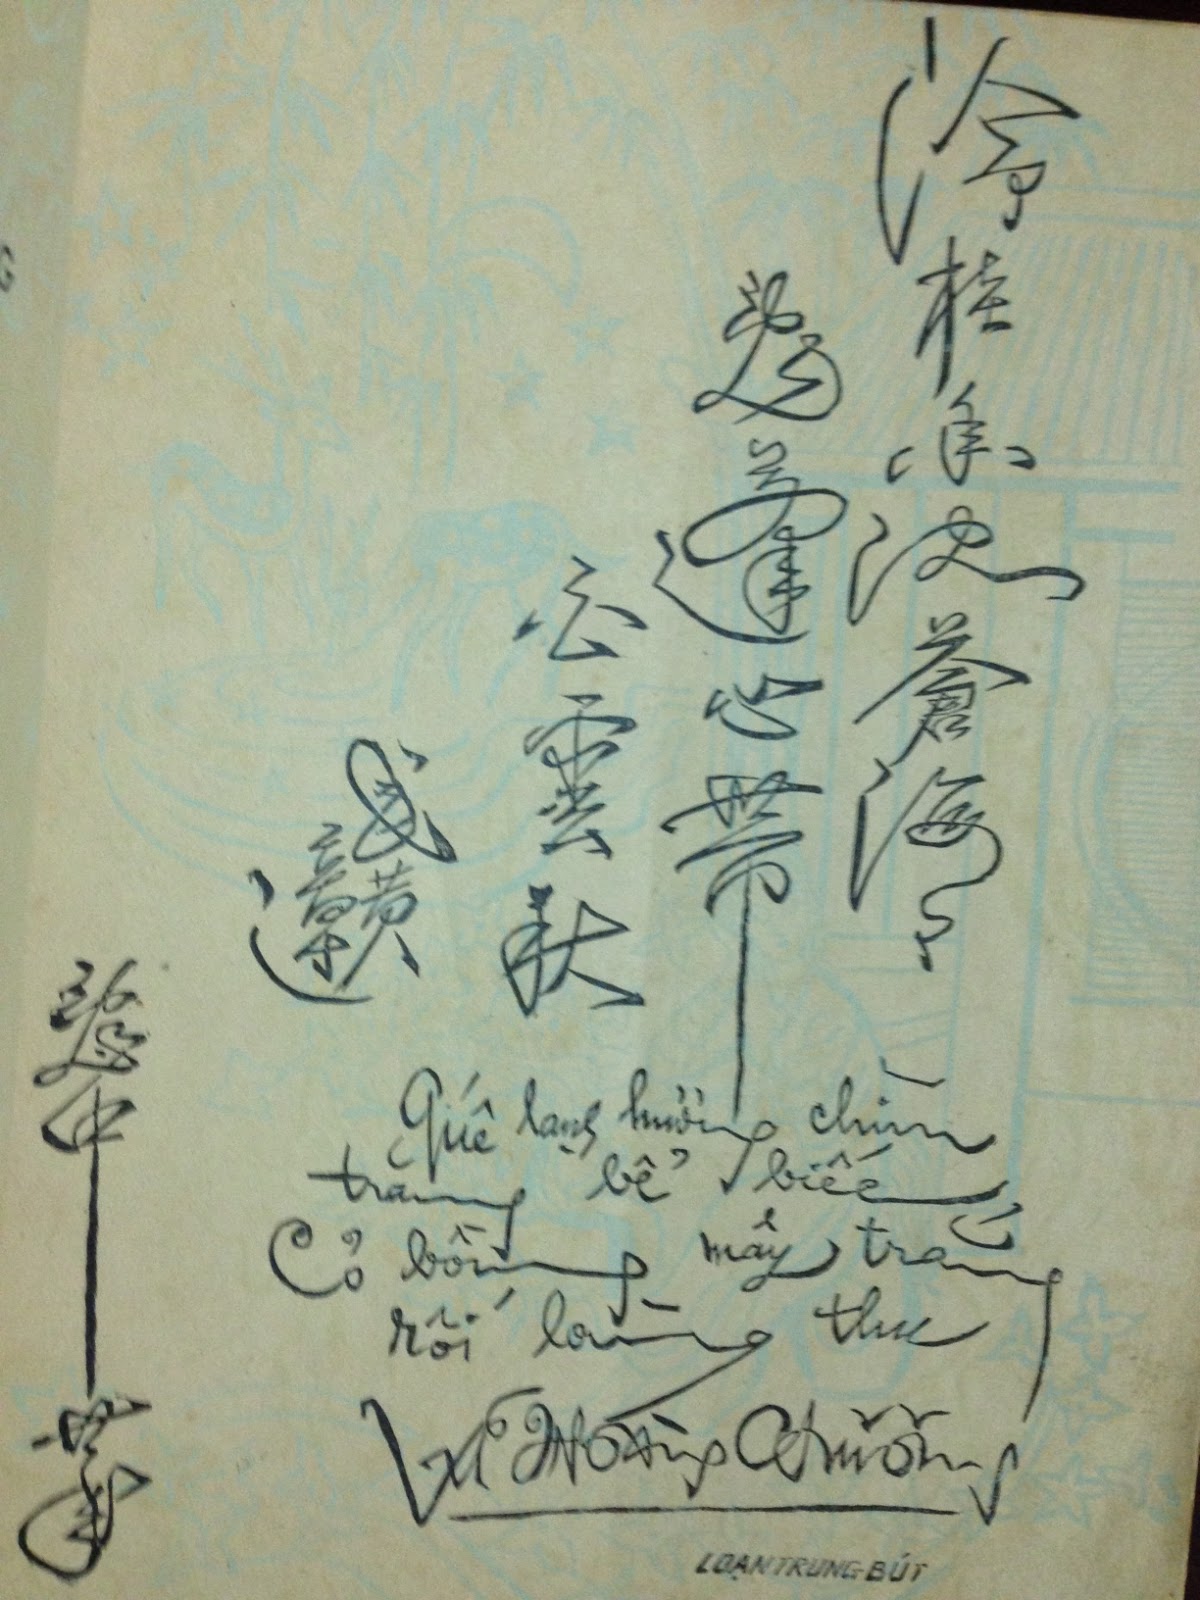 冷桂香沈蒼海
亂蓬心帶
白雲秋
武
亂中筆
Quế lạnh hương chìm
trăng bể biếc
Cỏ bồng mây trắng
rối lòng thu
Vũ Hoàng Chương
LOẠN TRUNG BÚT